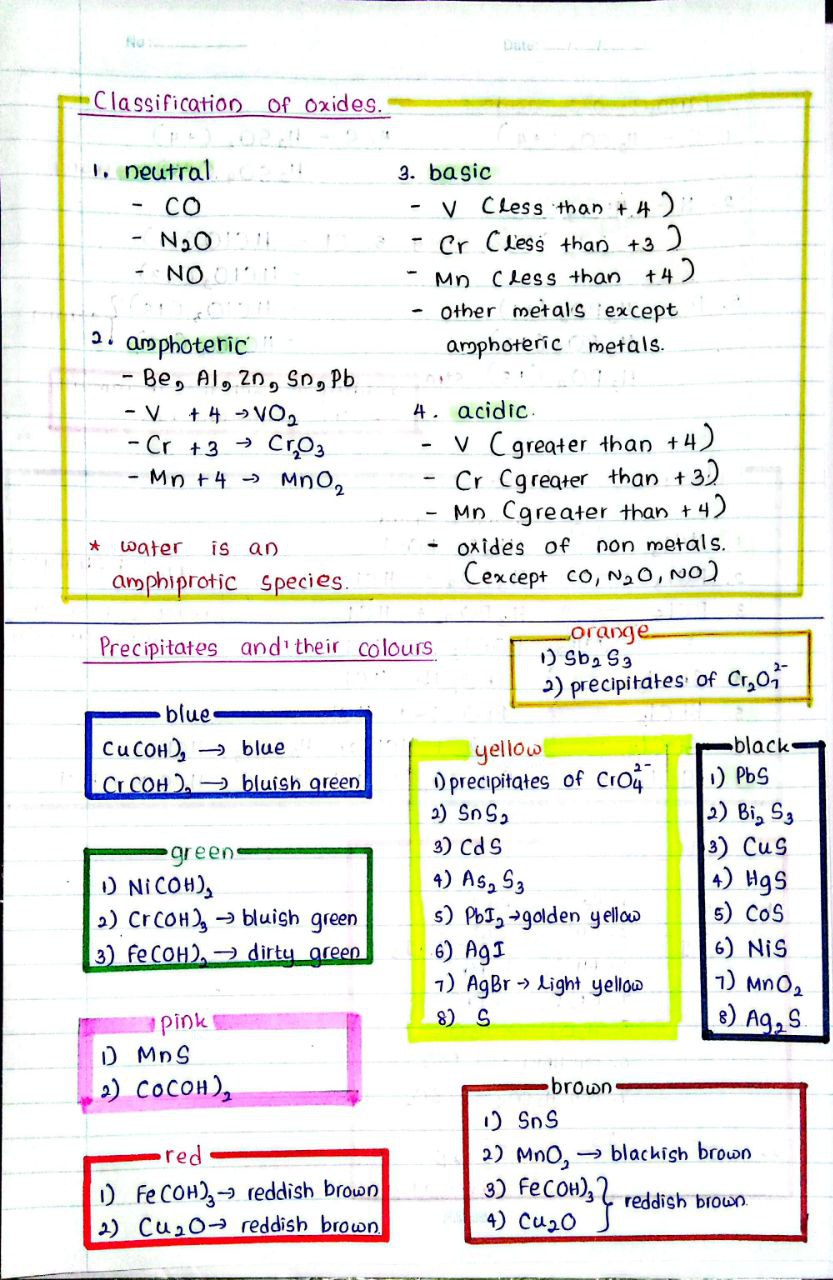 No :
Date:
Classification of oxides.
1. neutral
- CO
- N₂O
- NO
2. amphoteric
- Be, Al, Zn, Sn, Pb
- V +4 → VO₂
- Cr +3 → Cr₂O₃
- Mn +4 → MnO₂
* water is an
amphiprotic species.
3. basic
- V (less than +4)
- Cr (less than +3)
- Mn (less than +4)
- other metals except
amphoteric metals.
4. acidic.
- V (greater than +4)
- Cr (greater than +3)
- Mn (greater than +4)
- oxides of non metals.
(except CO, N₂O, NO)
Precipitates and their colours
orange
1) Sb₂S₃
2) precipitates of Cr₂O₇²⁻
blue
Cu(OH)₂ → blue
Cr(OH)₃ → bluish green
green
1) Ni(OH)₂
2) Cr(OH)₃ → bluish green
3) Fe(OH)₂ → dirty green
pink
1) MnS
2) Co(OH)₂
red
1) Fe(OH)₃ → reddish brown
2) Cu₂O → reddish brown
yellow
1) precipitates of CrO₄²⁻
2) SnS₂
3) CdS
4) As₂S₃
5) PbI₂ → golden yellow
6) AgI
7) AgBr → light yellow
8) S
black
1) PbS
2) Bi₂S₃
3) CuS
4) HgS
5) CoS
6) NiS
7) MnO₂
8) Ag₂S
brown
1) SnS
2) MnO₂ → blackish brown
3) Fe(OH)₃ } reddish brown
4) Cu₂O